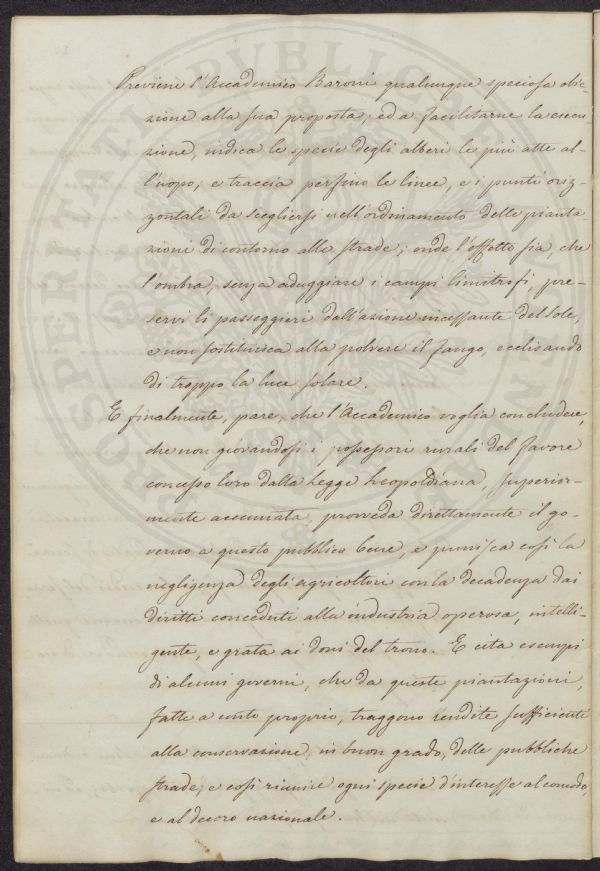 Previene l'Accademico Baroni qualunque speciosa obie-
zione alla sua proposta; ed a facilitarne la esecu-
zione, indica le specie degli alberi le più atte al-
l'uopo, e traccia perfino le linee, e i punti oriz-
zontali da scegliersi nell'ordinamento delle pianta
zioni di contorno alle strade; onde l'effetto sia, che
l'ombra, senza aduggiare i campi limitrofi, pre-
servi li passeggieri dall'azione incessante del Sole,
e non sostituisca alla polvere il fango, ecclisando
di troppo la luce solare.
E finalmente, pare, che l'Accademico voglia concludere,
che non giovandosi i possessori rurali del favore
concesso loro dalla Legge Leopoldiana, superior-
mente accennata, provveda direttamente il go-
verno a questo pubblico bene, e punisca così la
negligenza degli agricoltori con la decadenza dai
diritti conceduti alla industria operosa, intelli-
gente, e grata ai doni del trono. E cita esempi
di alcuni governi, che da queste piantazioni,
fatte a conto proprio, traggono rendite sufficienti
alla conservazione, in buon grado, delle pubbliche
strade, e così riunire ogni specie d'interesse al comodo,
e al decoro nazionale.
PROSPERITATI PUBLICAE